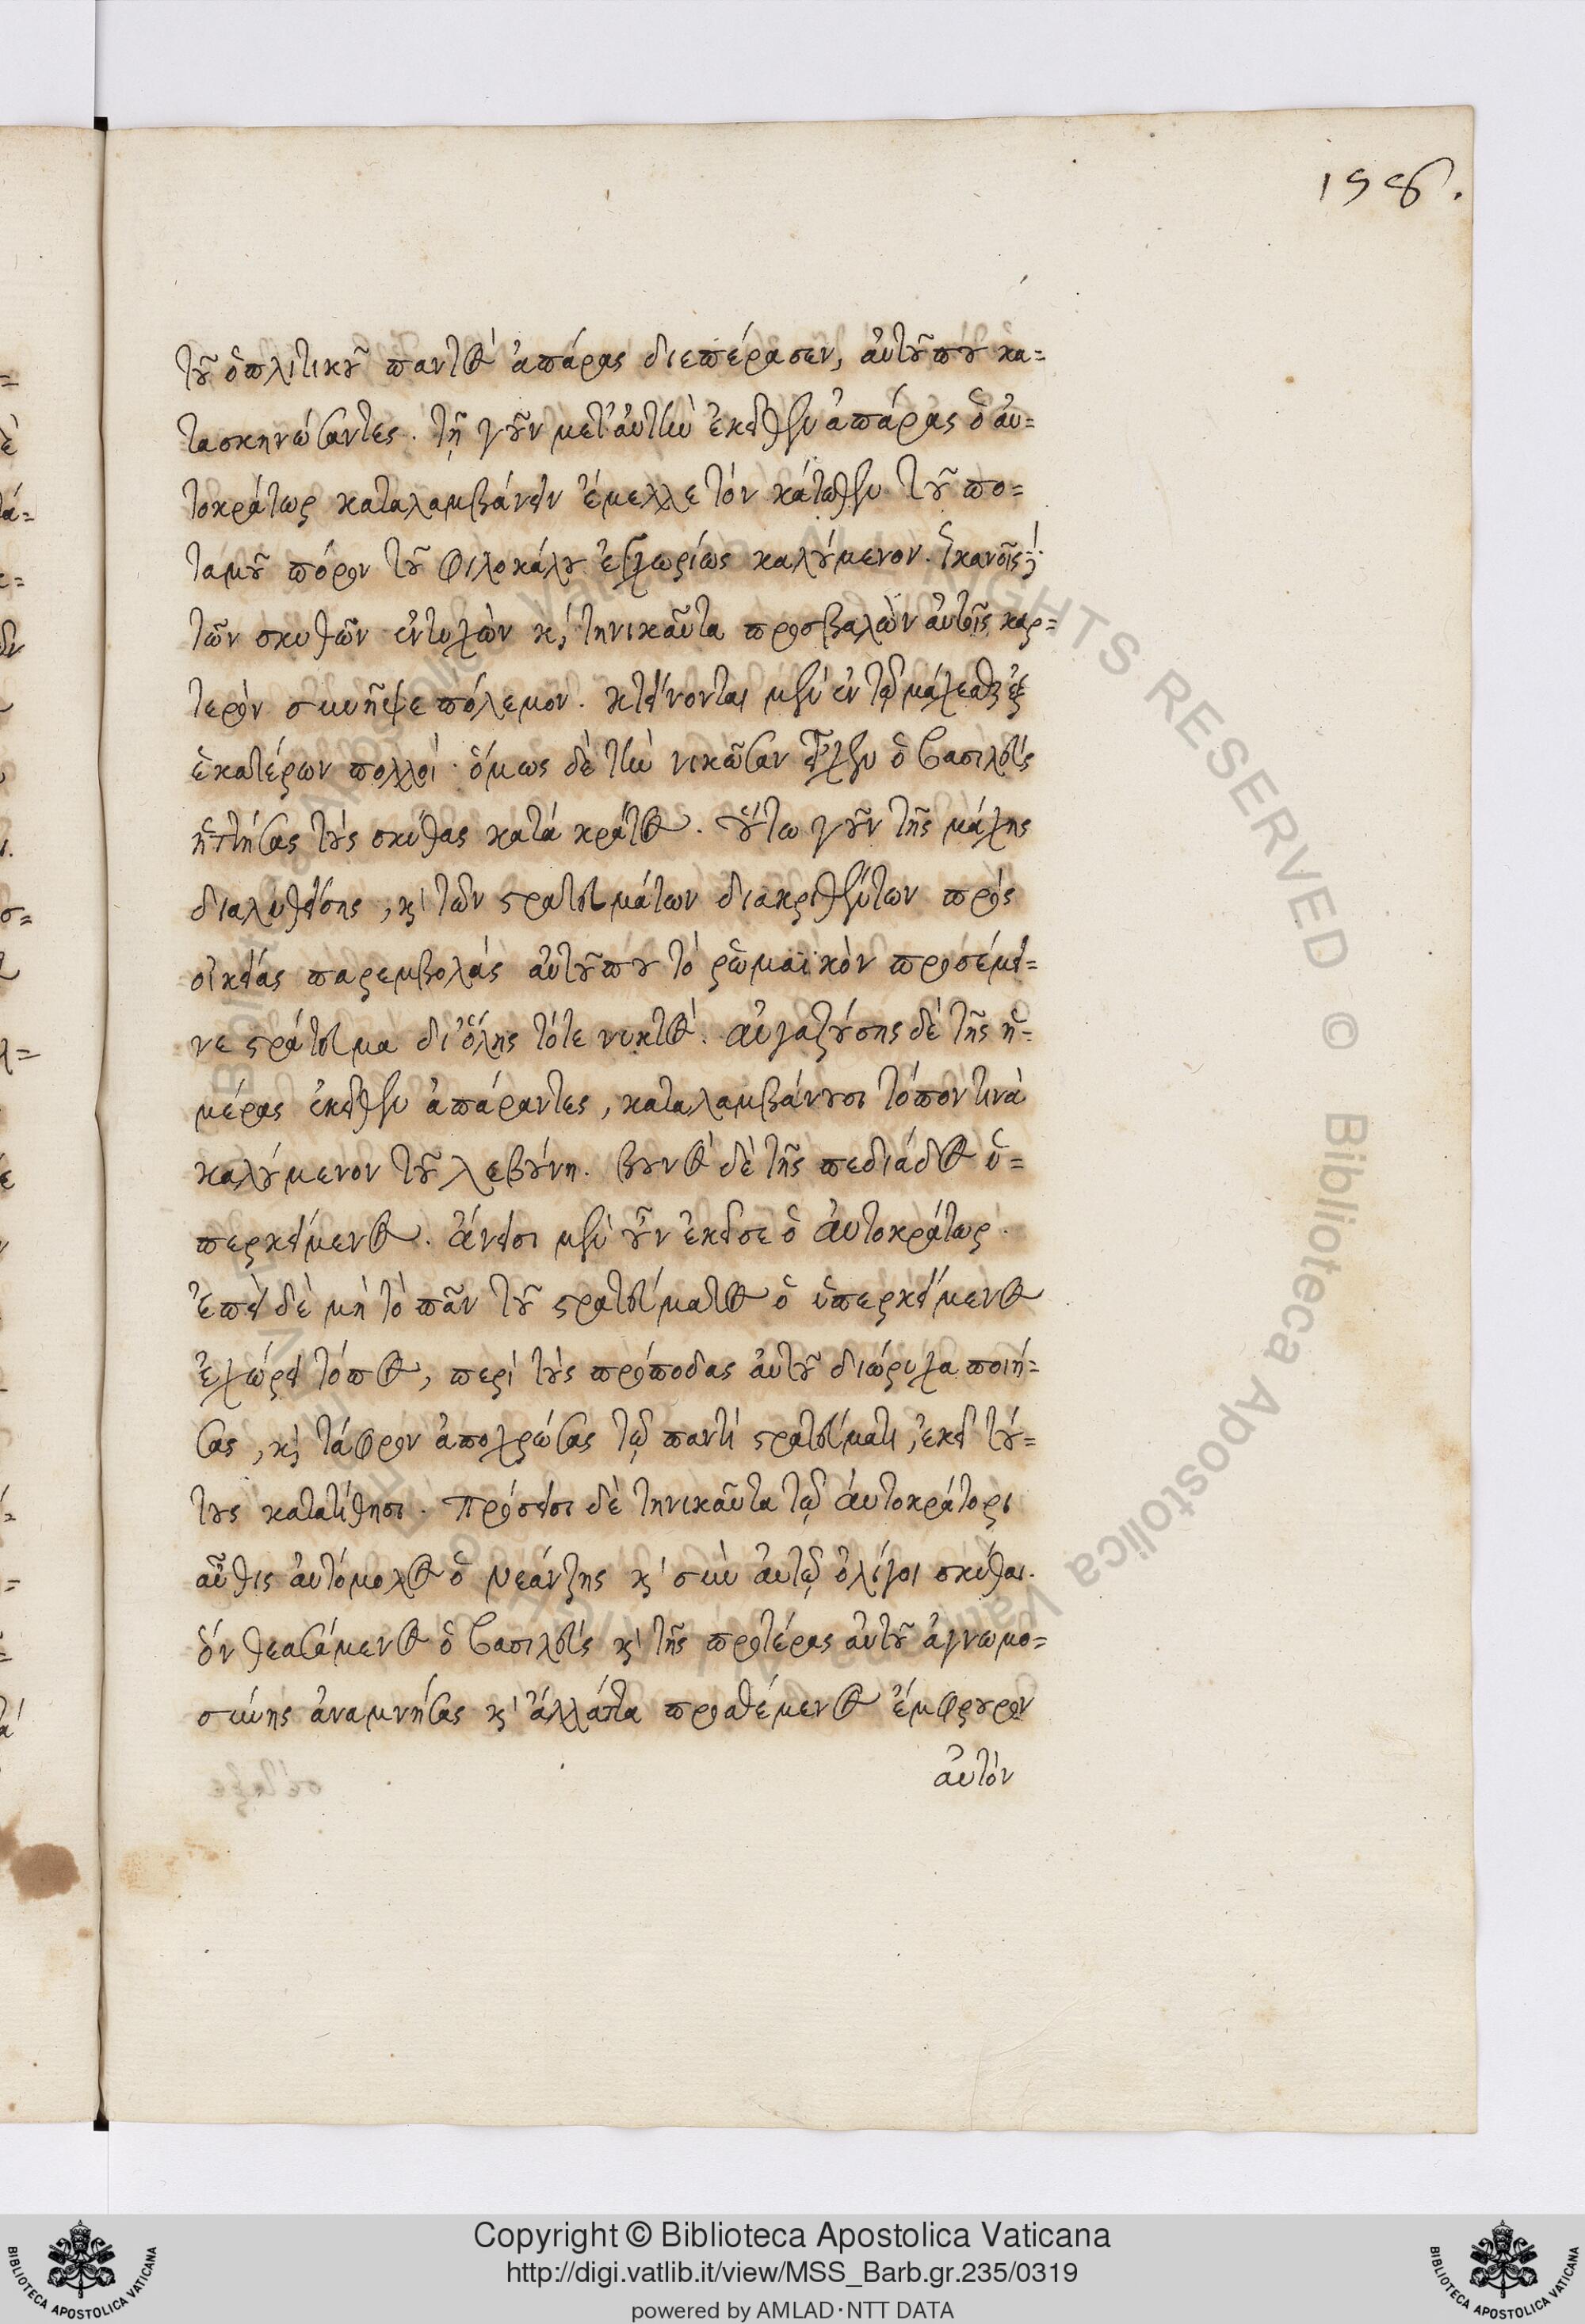 156.
τοῦ ὁπλιτικοῦ παντὸς ἀπάρας διεπέρασεν, αὐτοῦ που κα=
τασκηνώσαντες. τῇ γοῦν μετ' αὐτὴν ἐκεῖθεν ἀπάρας ὁ αὐ=
τοκράτωρ καταλαμβάνειν ἔμελλε τὸν κάτωθεν τοῦ πο=
ταμοῦ πόρον τοῦ Φιλοκάλου ἐγχωρίως καλούμενον. ἱκανοῖς δὲ
τῶν σκυθῶν ἐντυχὼν καὶ τηνικαῦτα προσβαλὼν αὐτοῖς καρ=
τερὸν συνῆψε πόλεμον. κτείνονται μὲν ἐν τῷ μάχεσθαι ἐξ
ἑκατέρων πολλοί. ὅμως δὲ τὴν νικῶσαν εἶχεν ὁ βασιλεὺς
ἡττήσας τοὺς σκύθας κατὰ κράτος. οὕτω γοῦν τῆς μάχης
διαλυθείσης, καὶ τῶν στρατευμάτων διακριθέντων πρὸς
οἰκείας παρεμβολὰς αὐτοῦ που τὸ ῥωμαϊκὸν προσέμει=
νε στράτευμα δι' ὅλης τότε νυκτός. αὐγαζούσης δὲ τῆς ἡ=
μέρας ἐκεῖθεν ἀπάραντες, καταλαμβάνουσι τόπον τινὰ
καλούμενον τοῦ λεβούνη. βουνὸς δὲ τῆς πεδιάδος ὑ=
περκείμενος. ἄνεισι μὲν οὖν ἐκεῖσε ὁ αὐτοκράτωρ.
ἐπεὶ δὲ μὴ τὸ πᾶν τοῦ στρατεύματος ὁ ὑπερκείμενος
ἐχώρει τόπος, περὶ τοὺς πρόποδας αὐτοῦ διώρυχα ποιή=
σας, καὶ τάφρον ἀποχρώσας τῷ παντὶ στρατεύματι, ἐκεῖ τού=
τους κατατίθησι. πρόσεισι δὲ τηνικαῦτα τῷ αὐτοκράτορι
αὖθις αὐτόμολος ὁ νεάντζης καὶ σὺν αὐτῷ ὀλίγοι σκύθαι.
ὃν θεασάμενος ὁ βασιλεὺς καὶ τῆς προτέρας αὐτοῦ ἀγνωμο=
σύνης ἀναμνήσας καὶ ἀλλάττα προσθέμενος ἔμφρουρον
αὐτὸν